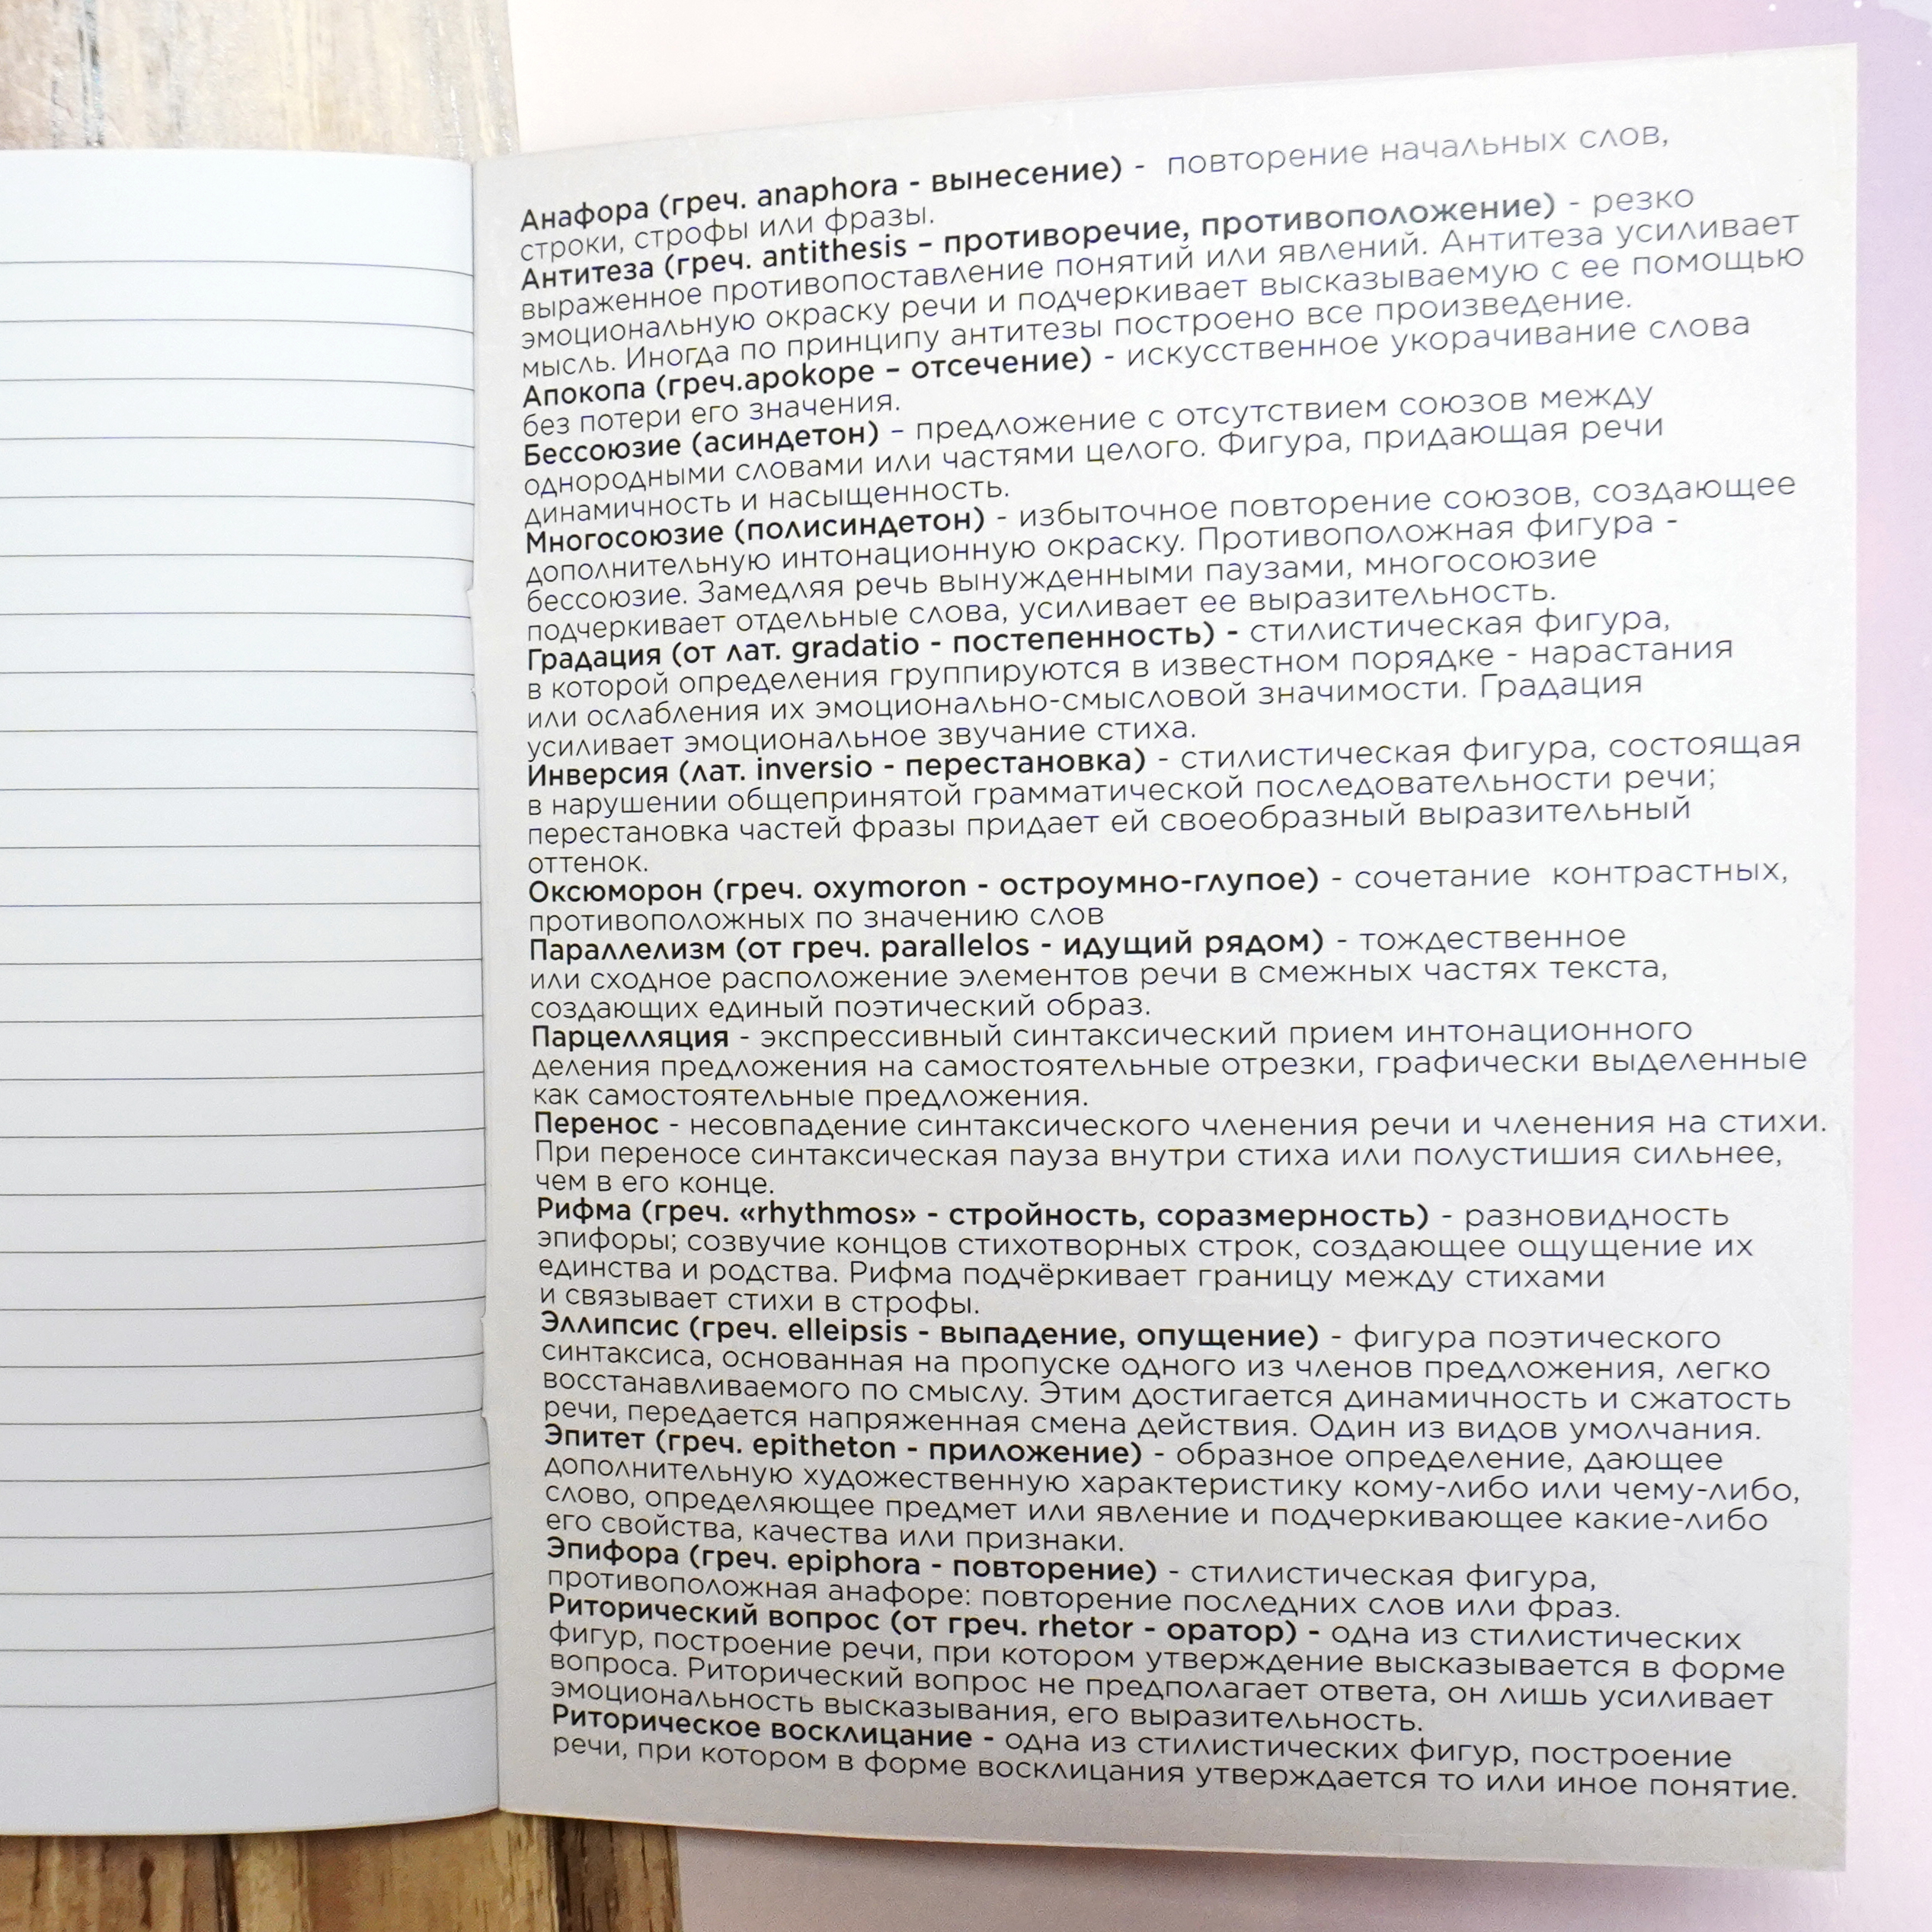 Анафора (греч. anaphora - вынесение) - повторение начальных слов,
строки, строфы или фразы.
Антитеза (греч. antithesis – противоречие, противоположение) - резко
выраженное противопоставление понятий или явлений. Антитеза усиливает
эмоциональную окраску речи и подчеркивает высказываемую с ее помощью
мысль. Иногда по принципу антитезы построено все произведение.
Апокопа (греч.apokope – отсечение) - искусственное укорачивание слова
без потери его значения.
Бессоюзие (асиндетон) – предложение с отсутствием союзов между
однородными словами или частями целого. Фигура, придающая речи
динамичность и насыщенность.
Многосоюзие (полисиндетон) - избыточное повторение союзов, создающее
дополнительную интонационную окраску. Противоположная фигура -
бессоюзие. Замедляя речь вынужденными паузами, многосоюзие
подчеркивает отдельные слова, усиливает ее выразительность.
Градация (от лат. gradatio - постепенность) - стилистическая фигура,
в которой определения группируются в известном порядке - нарастания
или ослабления их эмоционально-смысловой значимости. Градация
усиливает эмоциональное звучание стиха.
Инверсия (лат. inversio - перестановка) - стилистическая фигура, состоящая
в нарушении общепринятой грамматической последовательности речи;
перестановка частей фразы придает ей своеобразный выразительный
оттенок.
Оксюморон (греч. oxymoron - остроумно-глупое) - сочетание контрастных,
противоположных по значению слов
Параллелизм (от греч. parallelos - идущий рядом) - тождественное
или сходное расположение элементов речи в смежных частях текста,
создающих единый поэтический образ.
Парцелляция - экспрессивный синтаксический прием интонационного
деления предложения на самостоятельные отрезки, графически выделенные
как самостоятельные предложения.
Перенос - несовпадение синтаксического членения речи и членения на стихи.
При переносе синтаксическая пауза внутри стиха или полустишия сильнее,
чем в его конце.
Рифма (греч. «rhythmos» - стройность, соразмерность) - разновидность
эпифоры; созвучие концов стихотворных строк, создающее ощущение их
единства и родства. Рифма подчёркивает границу между стихами
и связывает стихи в строфы.
Эллипсис (греч. elleipsis - выпадение, опущение) - фигура поэтического
синтаксиса, основанная на пропуске одного из членов предложения, легко
восстанавливаемого по смыслу. Этим достигается динамичность и сжатость
речи, передается напряженная смена действия. Один из видов умолчания.
Эпитет (греч. epitheton - приложение) - образное определение, дающее
дополнительную художественную характеристику кому-либо или чему-либо,
слово, определяющее предмет или явление и подчеркивающее какие-либо
его свойства, качества или признаки.
Эпифора (греч. epiphora - повторение) - стилистическая фигура,
противоположная анафоре: повторение последних слов или фраз.
Риторический вопрос (от греч. rhetor - оратор) - одна из стилистических
фигур, построение речи, при котором утверждение высказывается в форме
вопроса. Риторический вопрос не предполагает ответа, он лишь усиливает
эмоциональность высказывания, его выразительность.
Риторическое восклицание - одна из стилистических фигур, построение
речи, при котором в форме восклицания утверждается то или иное понятие.